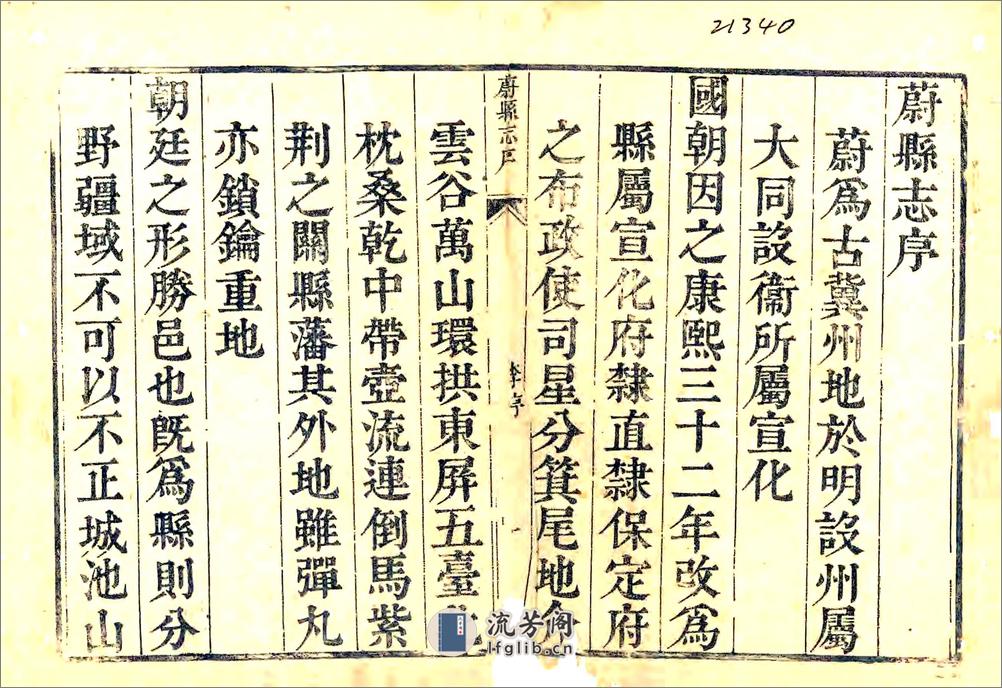 21340
蔚縣志序
蔚爲古冀州地於明設州屬
大同設衞所屬宣化
國朝因之康熙三十二年改爲
縣屬宣化府隸直隸保定府
之布政使司星分箕尾地
蔚縣志序
李序
一
雲谷萬山環拱東屏五臺
枕桑乾中帶壺流連倒馬紫
荆之關縣藩其外地雖彈丸
亦鎖鑰重地
朝廷之形勝邑也旣爲縣則分
野疆域不可以不正城池山
流芳阁
lfglib.cn